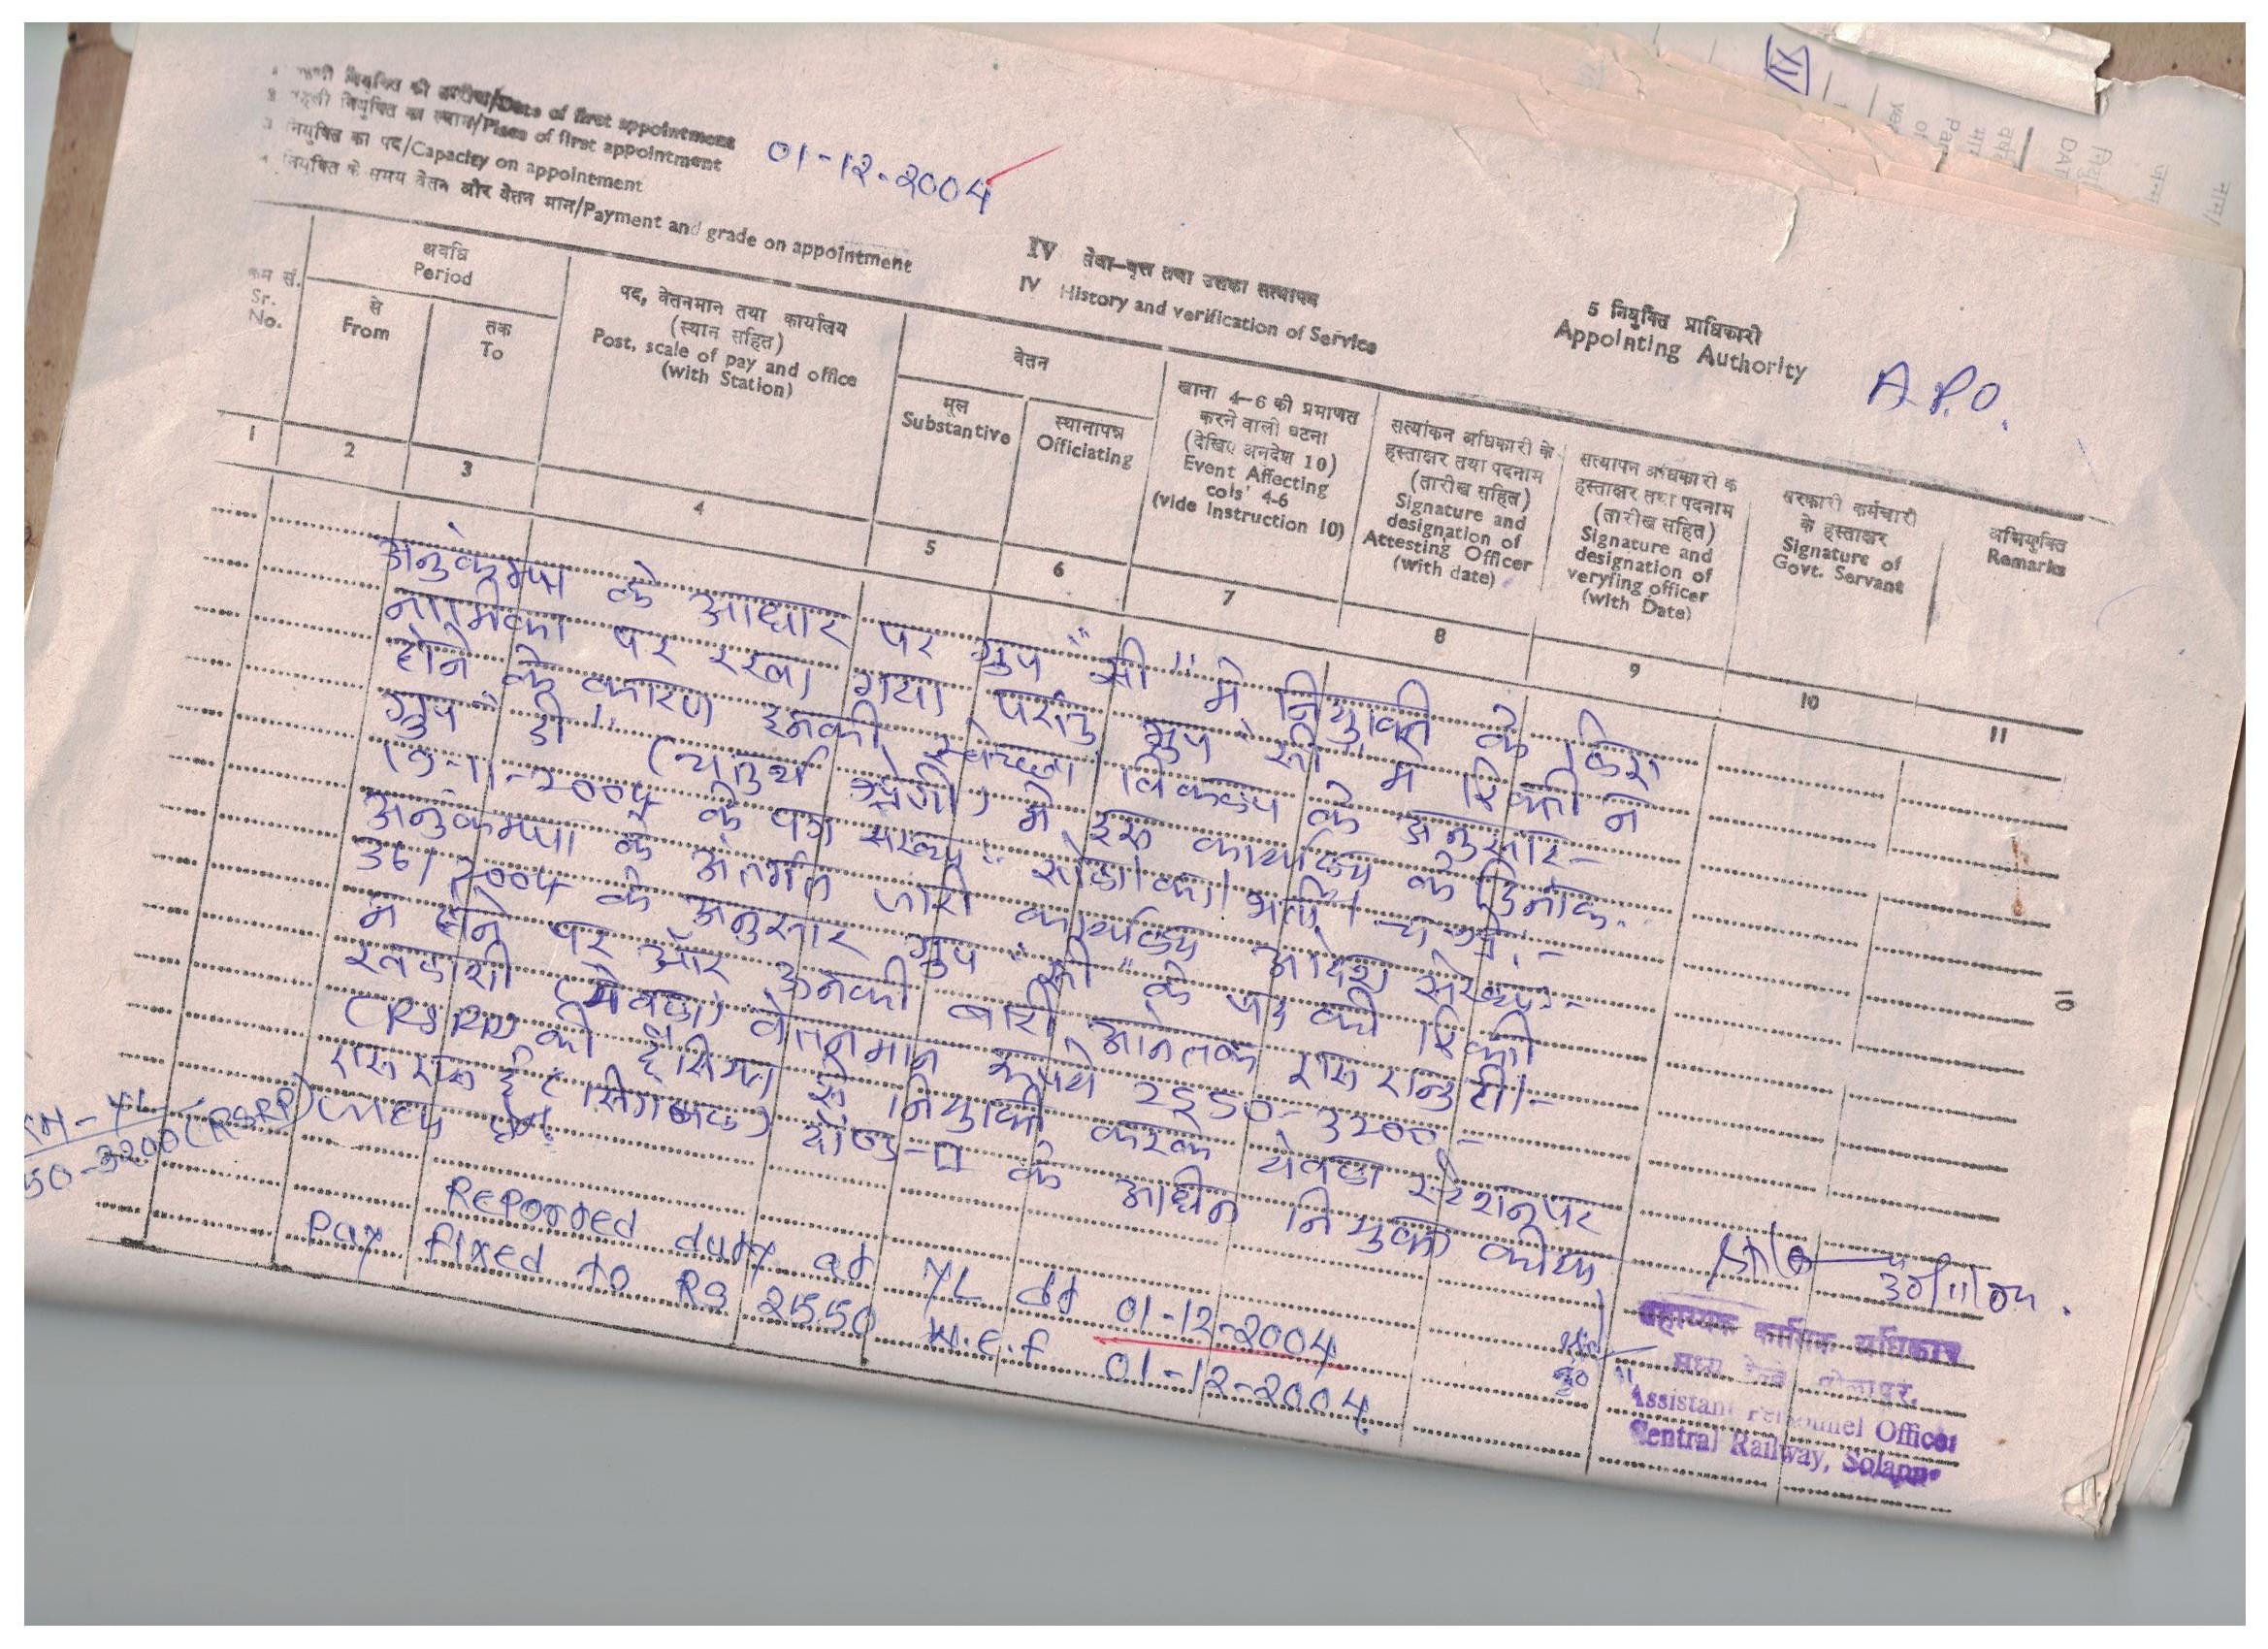 पहली नियुक्ति की तारीख/Date of first appointment
पहली नियुक्ति का स्थान/Place of first appointment
नियुक्ति का पद/Capacity on appointment
नियुक्ति के समय वेतन और वेतन मान/Payment and grade on appointment
01-12-2004
5 नियुक्ति प्राधिकारी
Appointing Authority
A.P.O.
IV सेवा-वृत्त तथा उसका सत्यापन
IV History and verification of Service
क्रम सं.
Sr.
No.
अवधि
Period
से
From
तक
To
पद, वेतनमान तथा कार्यालय
(स्थान सहित)
Post, scale of pay and office
(with Station)
वेतन
मूल
Substantive
स्थानापन्न
Officiating
खाना 4-6 की प्रमाणत
करने वाली घटना
(देखिए अनदेश 10)
Event Affecting
cols' 4-6
(vide Instruction 10)
सत्यांकन अधिकारी के
हस्ताक्षर तथा पदनाम
(तारीख सहित)
Signature and
designation of
Attesting Officer
(with date)
सत्यापन अधिकारी क
हस्ताक्षर तथा पदनाम
(तारीख सहित)
Signature and
designation of
veryfing officer
(with Date)
सरकारी कर्मचारी
के हस्ताक्षर
Signature of
Govt. Servant
अभियुक्ति
Remarks
1 2 3 4 5 6 7 8 9 10 11
अनुकम्पा के आधार पर ग्रुप "सी" मे नियुक्ति के लिए
नामिका पर रखा गया परंतु ग्रुप "सी" मे रिक्ती न
होने के कारण इनकी स्वेच्छा विकल्प के अनुसार-
ग्रुप "डी" (चतुर्थ श्रेणी) मे इस कार्यालय के दिनांक
-11-2004 के पत्र संख्या: सोला/का/भर्ती/
अनुकम्पा के अंतर्गत जारी कार्यालय आदेश संख्या:-
36/2004 के अनुसार ग्रुप "सी" के पद की रिक्ती
न होने पर और उनकी बारी आनेतक
खलाशी (येवला) वेतनमान रूपये 2550-3200-
(RSRP) की हैसियत से नियुक्ती करके येवला स्टेशनपर
एस एस ई (सिगनल) दौण्ड- के आधीन नियुक्त कीया
जाता है।
KH-YL
50-3200 (RSRP)
Reported duty at YL dt 01-12-2004
Pay fixed to Rs 2550 w.e.f 01-12-2004
30/11/04.
सहाय्यक कार्मिक अधिकारी
मध्य रेल्वे सोलापुर.
Assistant Personnel Officer
Central Railway, Solapur
10
IV